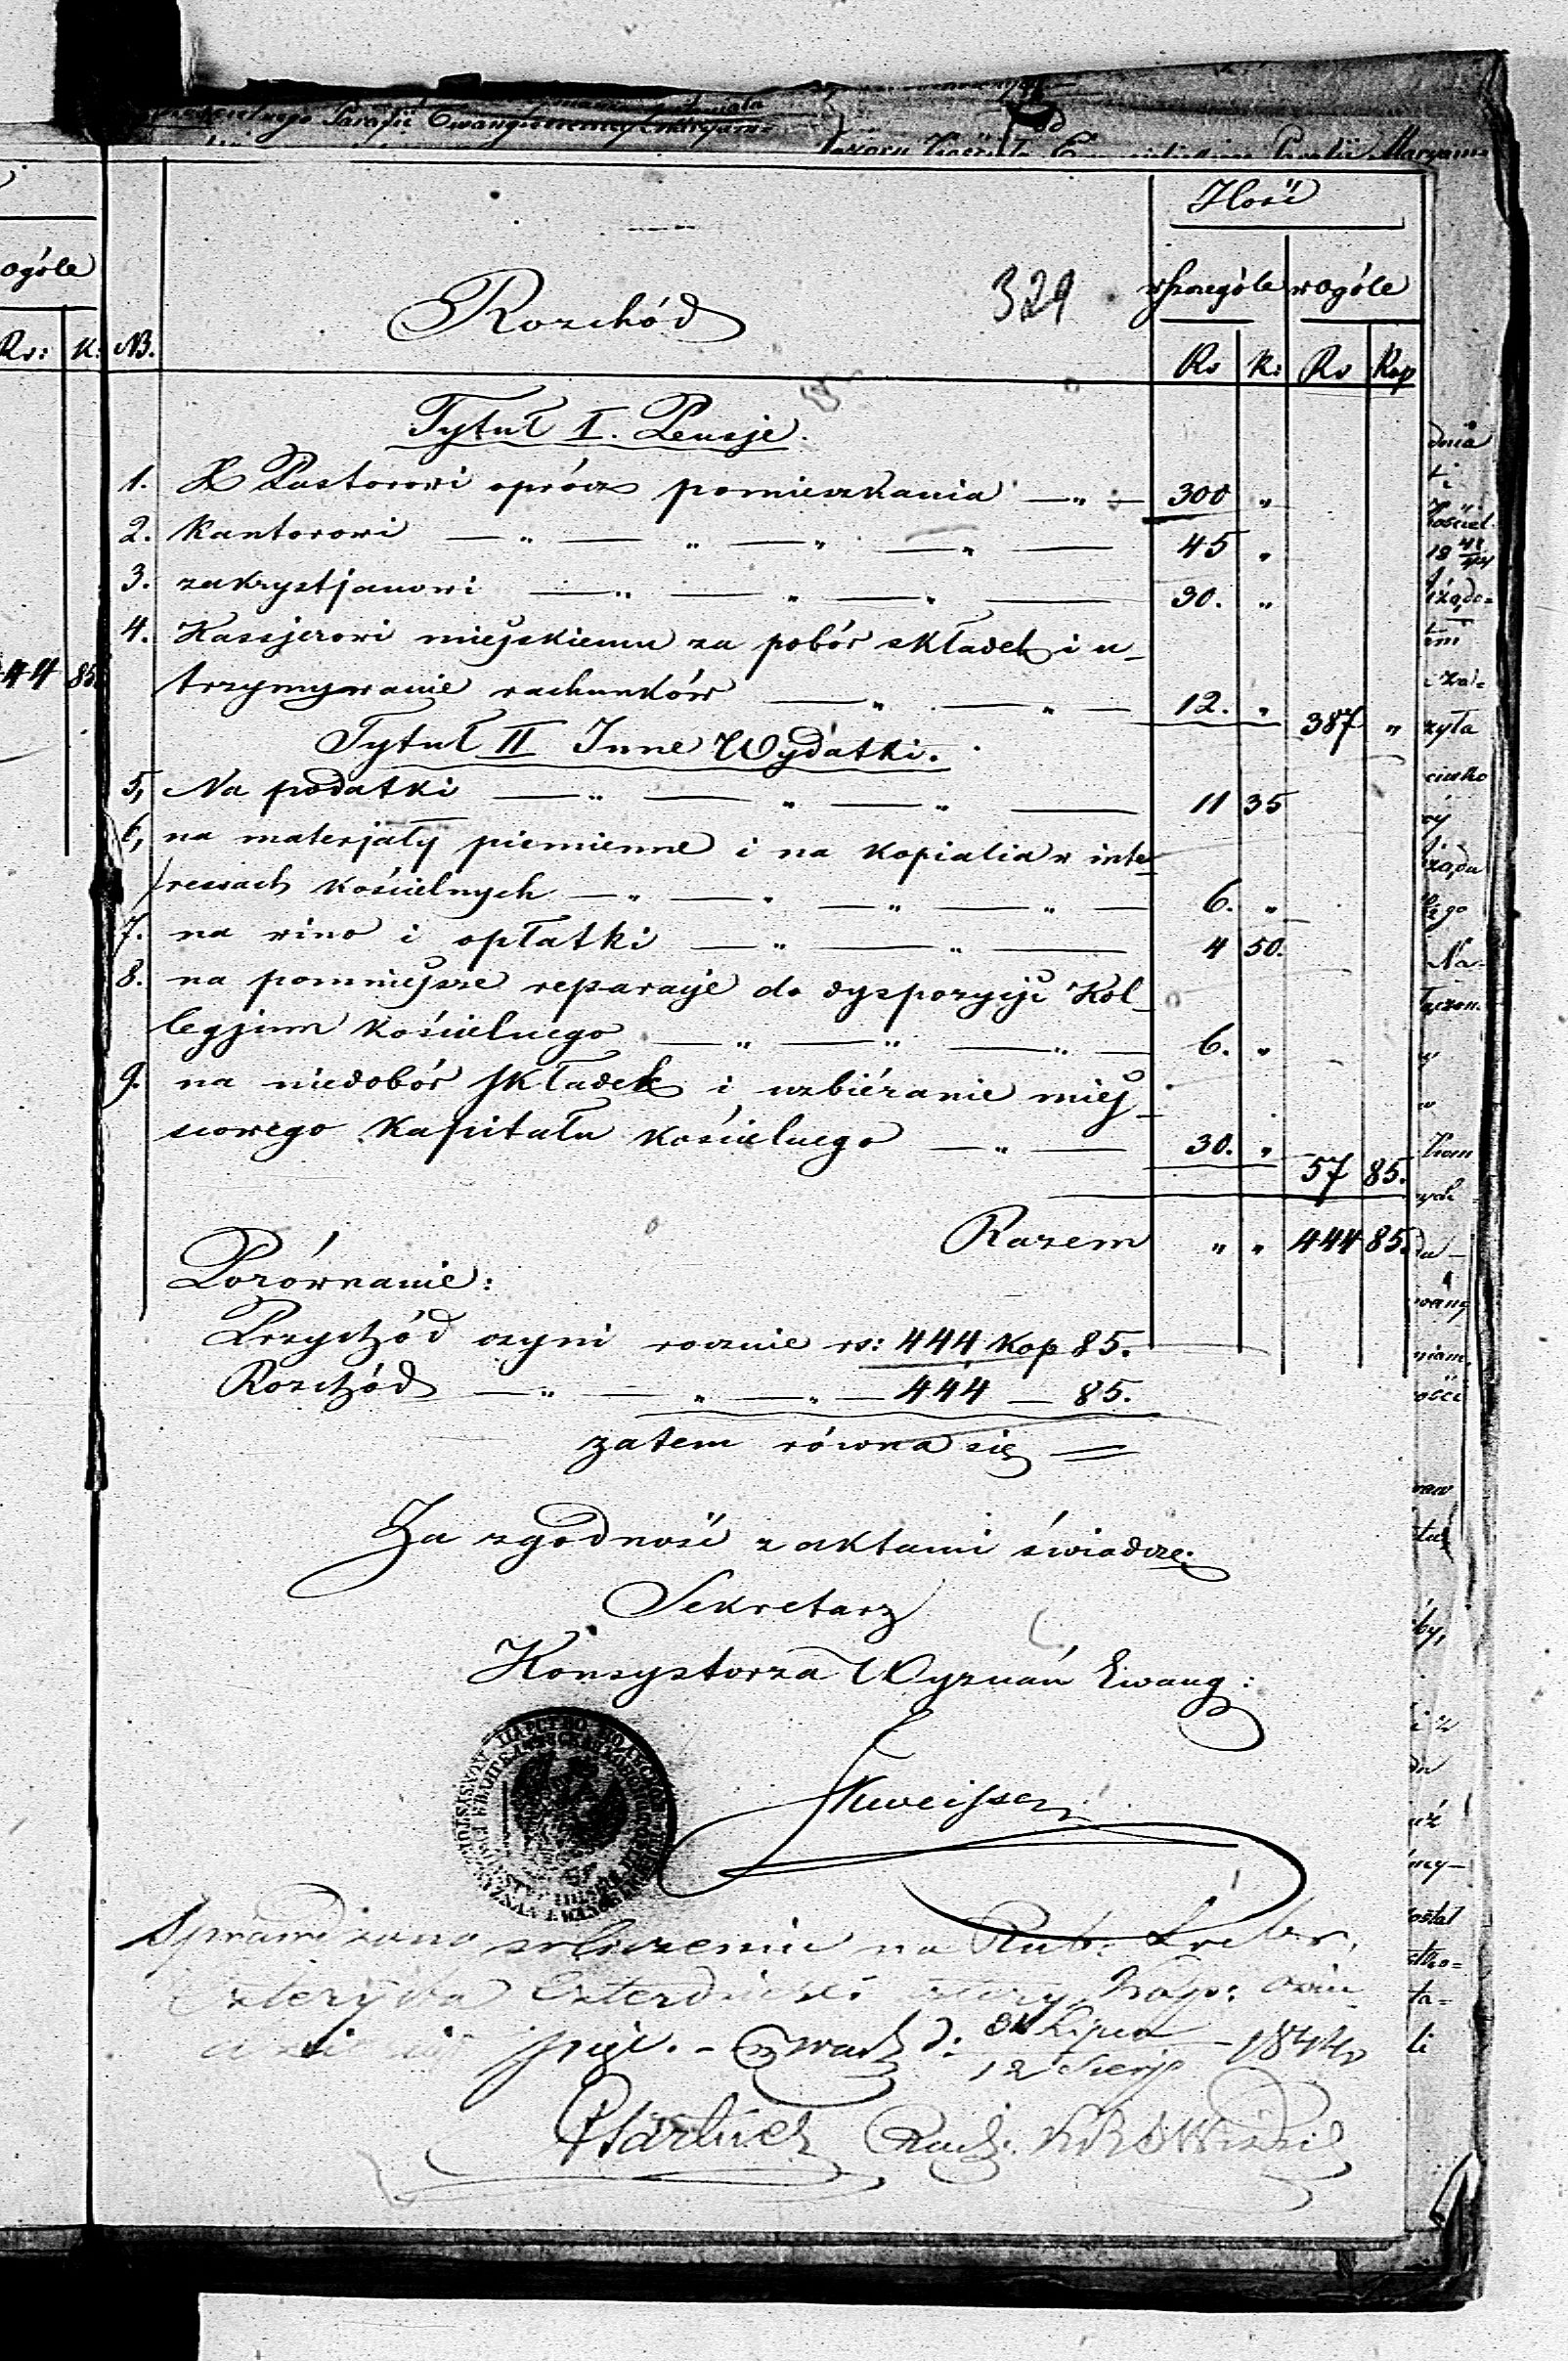 Ilość
ogóle
Rozchód
329
wszczególe w ogóle
Rs: K: NB. Rs K: Rs Kop
Tytuł I. Pensje.
1. X Pastorowi oprócz pomieszkania — " — 300 "
2. Kantorowi — " — " — " — " — 45 "
3. zakrystjanowi — " — " — " — 30. "
4. Kassjerowi miejskiemu za pobór składek i u-
44 85
trzymywanie rachunków — " — " — 12. " 387 "
Tytuł II Inne Wydatki.
5, Na podatki — " — " — " — 11 35
6, na materjały piemienne i na kopialia w inte-
ressach kościelnych — " — " — " — " — 6. "
7. na wino i opłatki — " — " — 4 50.
8. na pomniejsze reparacje do dyspozycji Kol-
legjum kościelnego — " — " — " — 6. "
9. na niedobór składek i uzbiéranie miej-
scowego kapitału kościelnego — " — 30. " 57 85.
Razem " " 444 85.
Porównanie:
Przychód czyni rocznie rs: 444 kop 85.
Rozchód — " — " — " — 444 — 85.
zatem równa się =
Za zgodność z aktami świadczę:
Sekretarz
Konsystorza Wyznań Ewang:
Sprawdzono w liczeniu na Rub: Srebr.
Czterysta Czterdzieści cztery Kop: osim
pięć. — Warsz d: 31 Lipca / 12 Sierp — 1844 r
Rach: